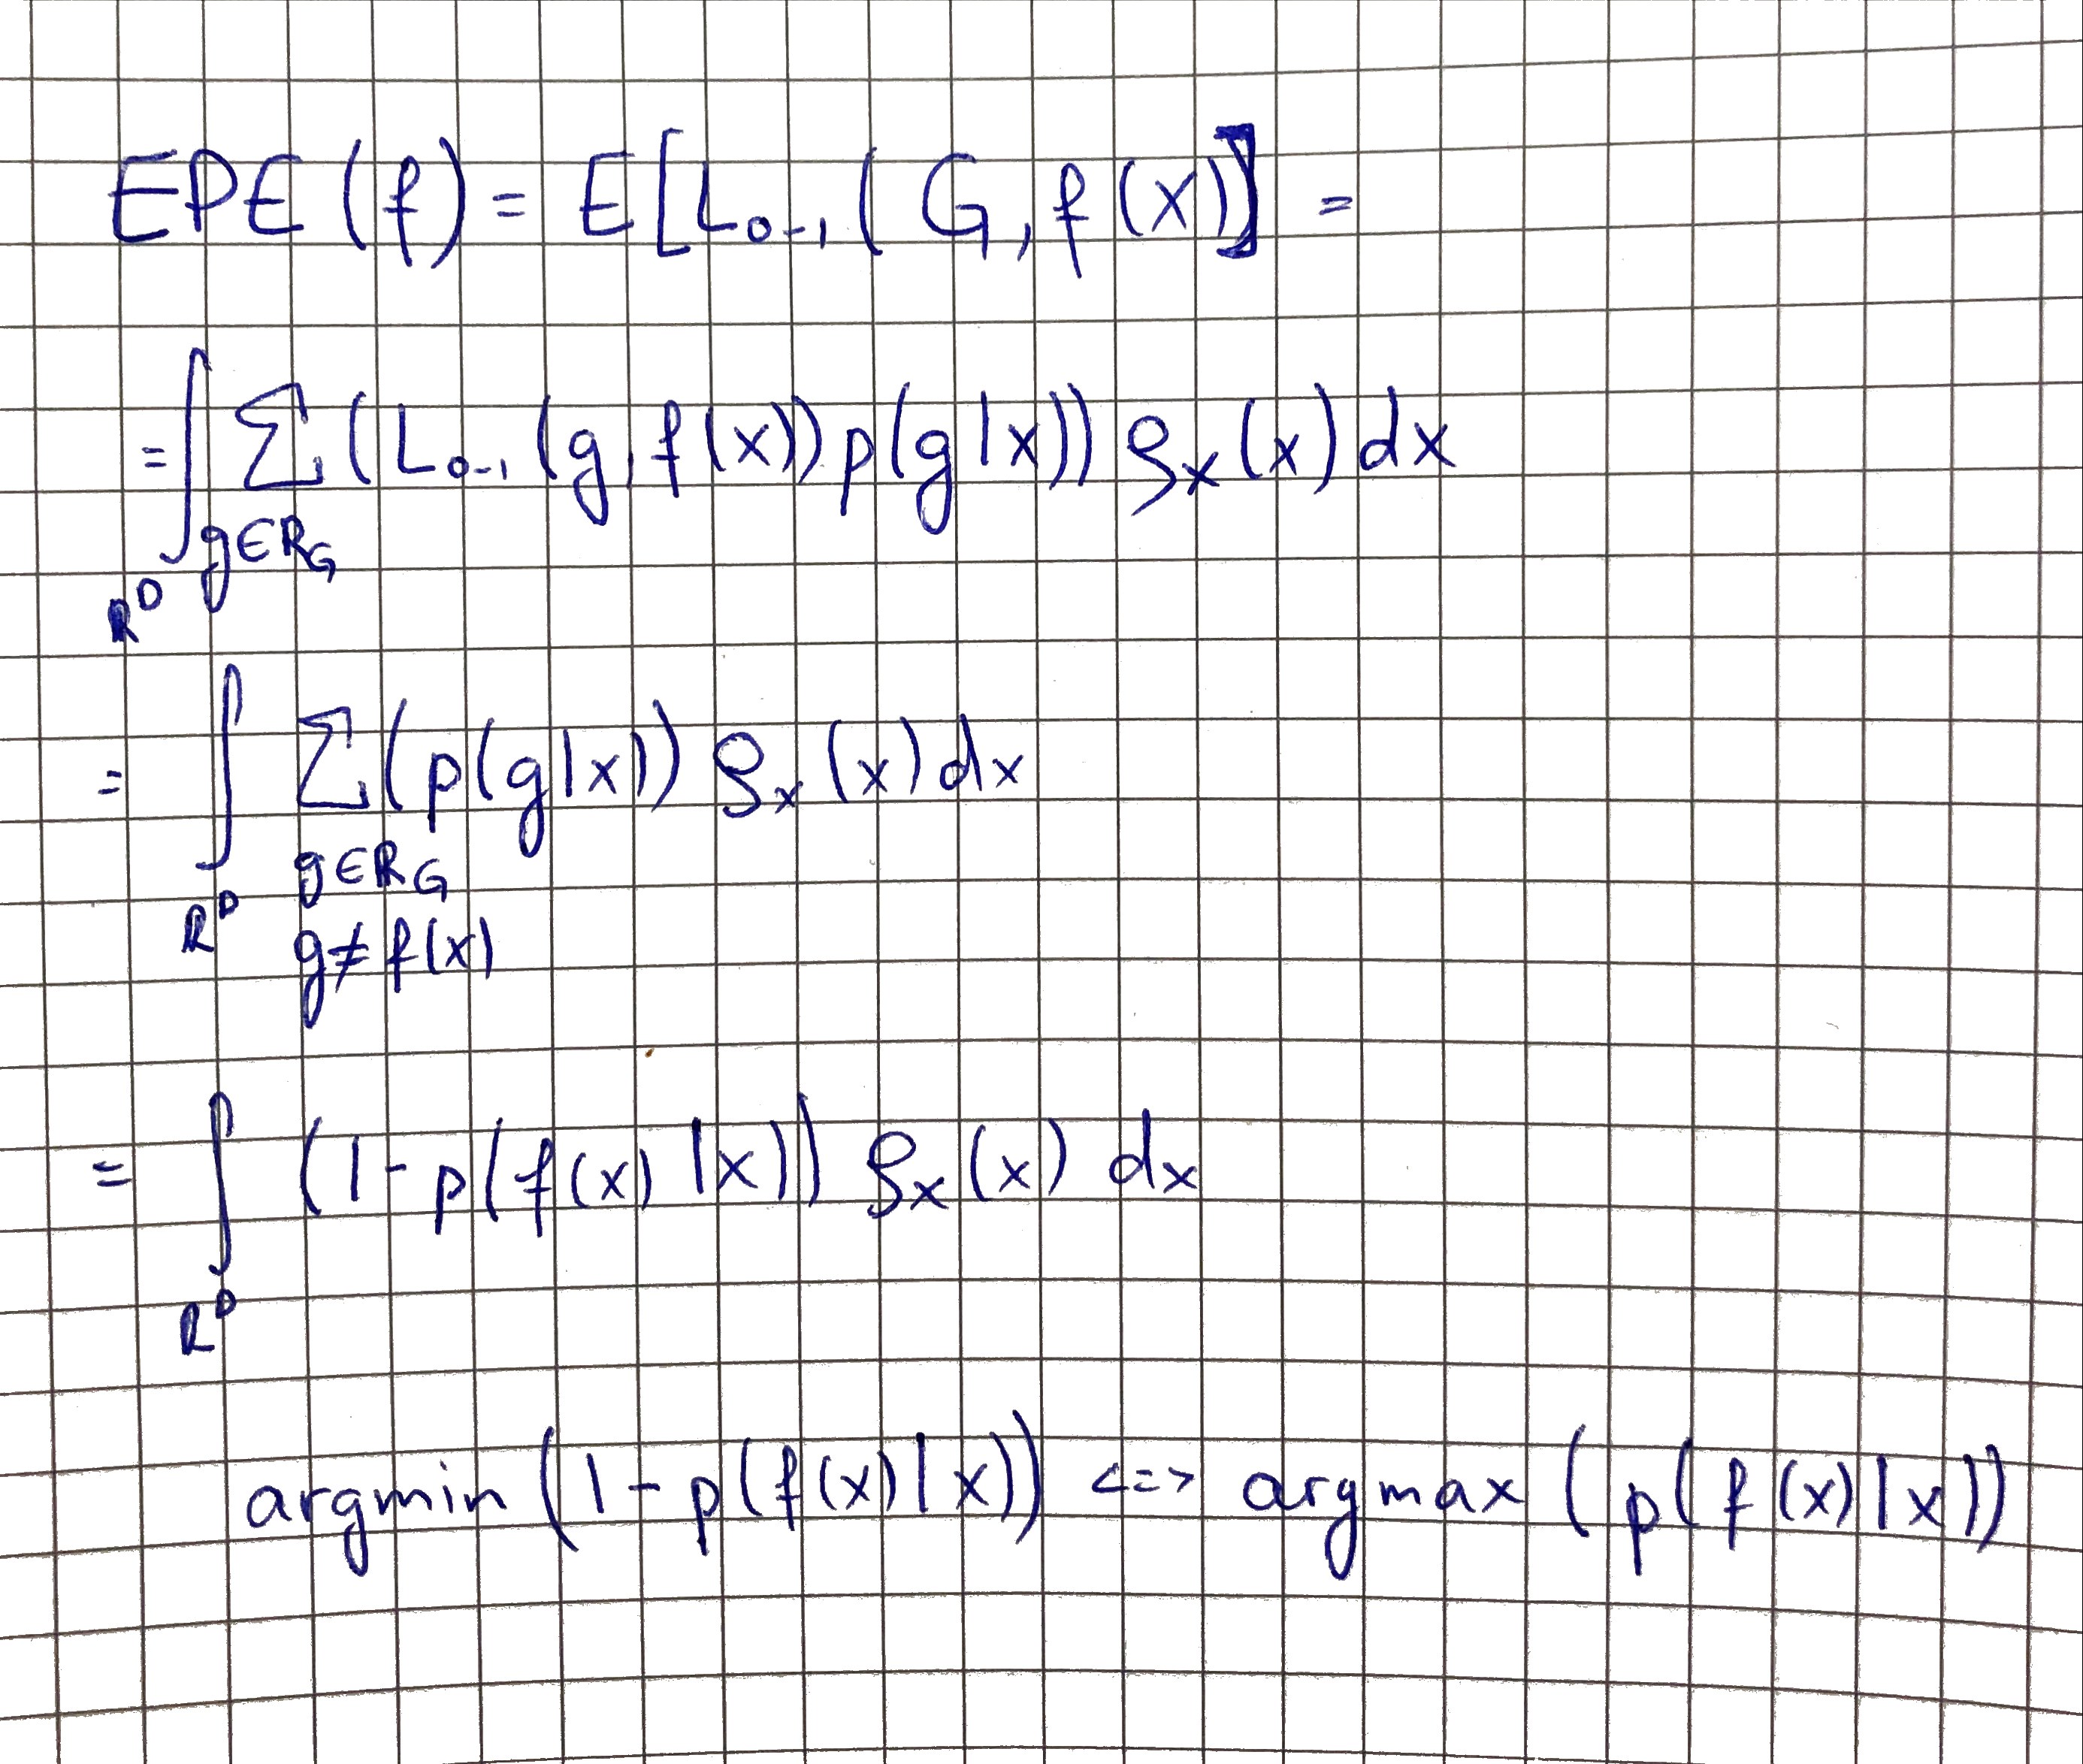 EPE(f) = E[L₀₋₁(G, f(X)] =
= ∫_{R^D} Σ_{g∈R_G} (L₀₋₁(g, f(x)) p(g|x)) ρ_X(x) dx
= ∫_{R^D} Σ_{g∈R_G, g≠f(x)} (p(g|x)) ρ_x(x) dx
= ∫_{R^D} (1 - p(f(x)|x)) ρ_x(x) dx
argmin (1 - p(f(x)|x)) <=> argmax (p(f(x)|x))